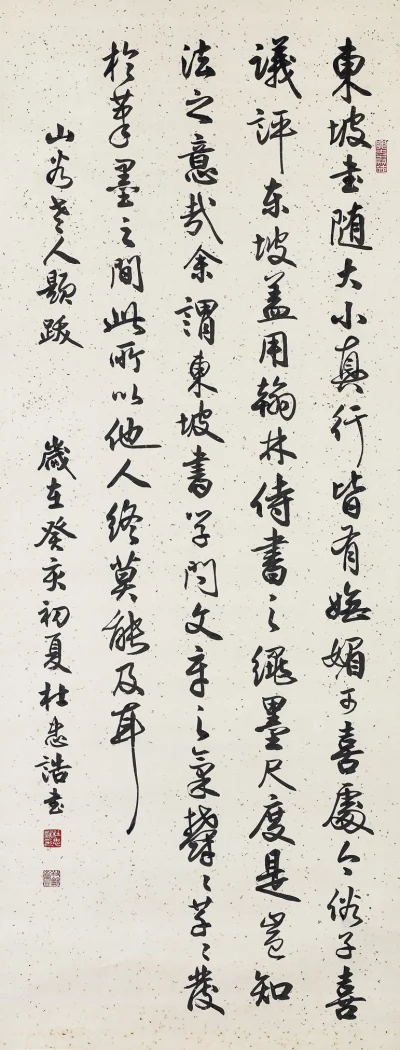 東坡書随大小真行皆有嫵媚可喜處今俗子喜
議評东坡盖用翰林侍書之繩墨尺度是豈知
法之意哉余謂東坡書学問文章之氣欝々芊々發
於筆墨之間此所以他人终莫能及耳
山谷老人題跋
歲在癸亥初夏杜忠誥書